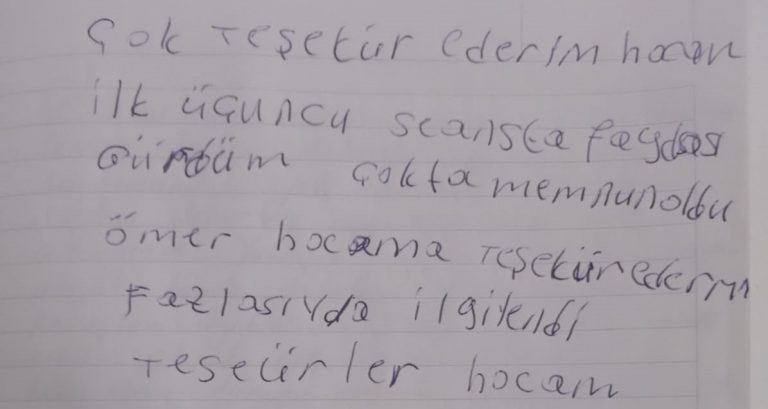 Çok Teşekür ederim hocam
ilk üçuncu scansta faydası
Gürdüm çokta memnunoldu
ömer hocama Teşekür ederim
Fazlasıyda ilgilendi
Teşeürler hocam